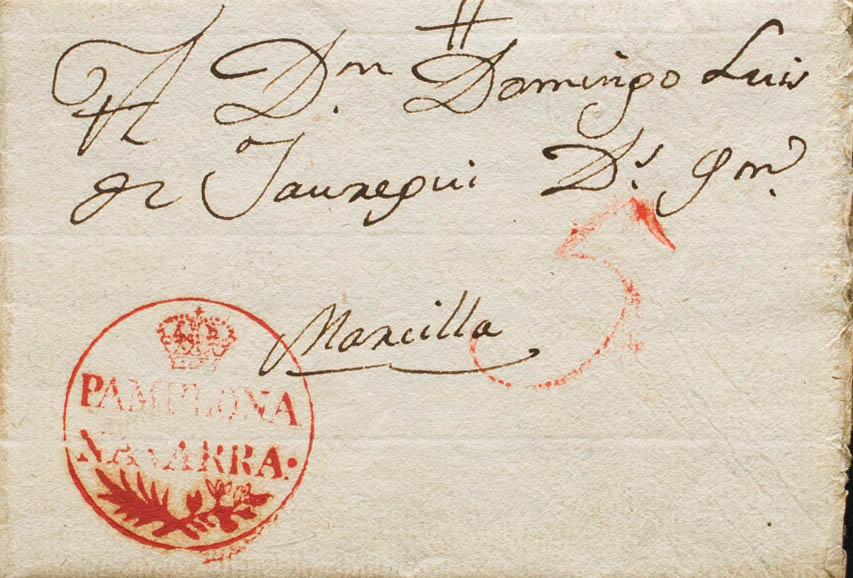 A Dn. Domingo Luis
de Jauregui Ds. gm.
Marcilla
5
PAMPLONA
NAVARRA.